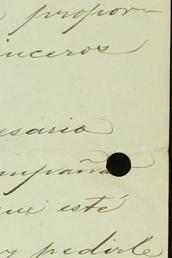 propor-
inceros
esario
mpaña
que esté
y pedirle